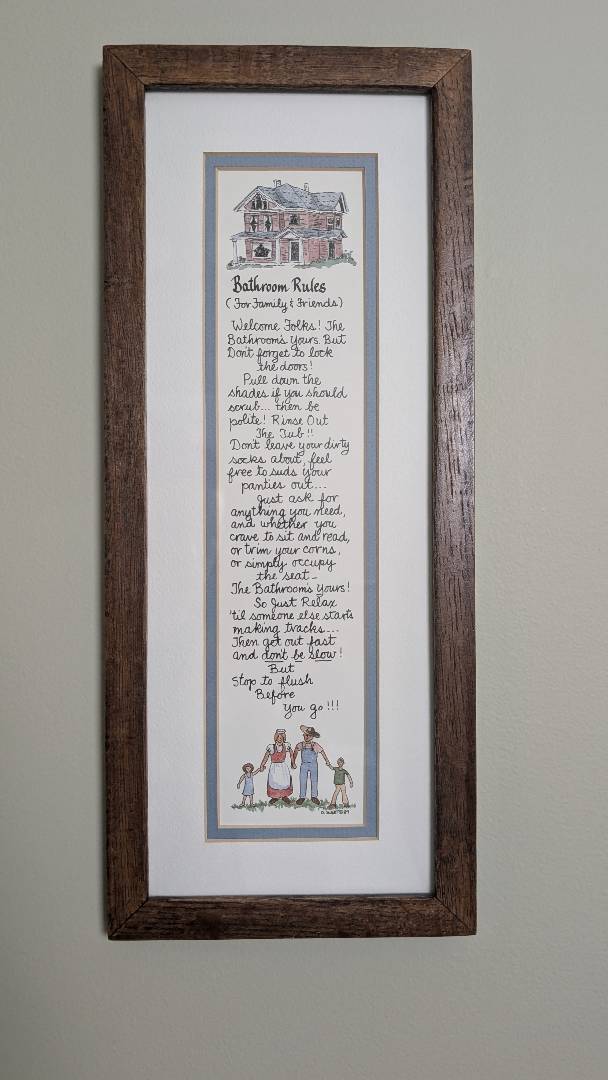 Bathroom Rules
(For Family & Friends)
Welcome Folks! The
Bathroom's Yours. But
Don't forget to lock
the doors!
Pull down the
shades if you should
scrub... then be
polite! Rinse Out
The Tub!!
Don't leave your dirty
socks about, feel
free to suds your
panties out...
Just ask for
anything you need,
and whether you
crave to sit and read,
or trim your corns,
or simply occupy
the seat–
The Bathroom's Yours!
So Just Relax
'til someone else starts
making tracks...
Then get out fast
and don't be slow!
But
Stop to flush
Before
You go!!!